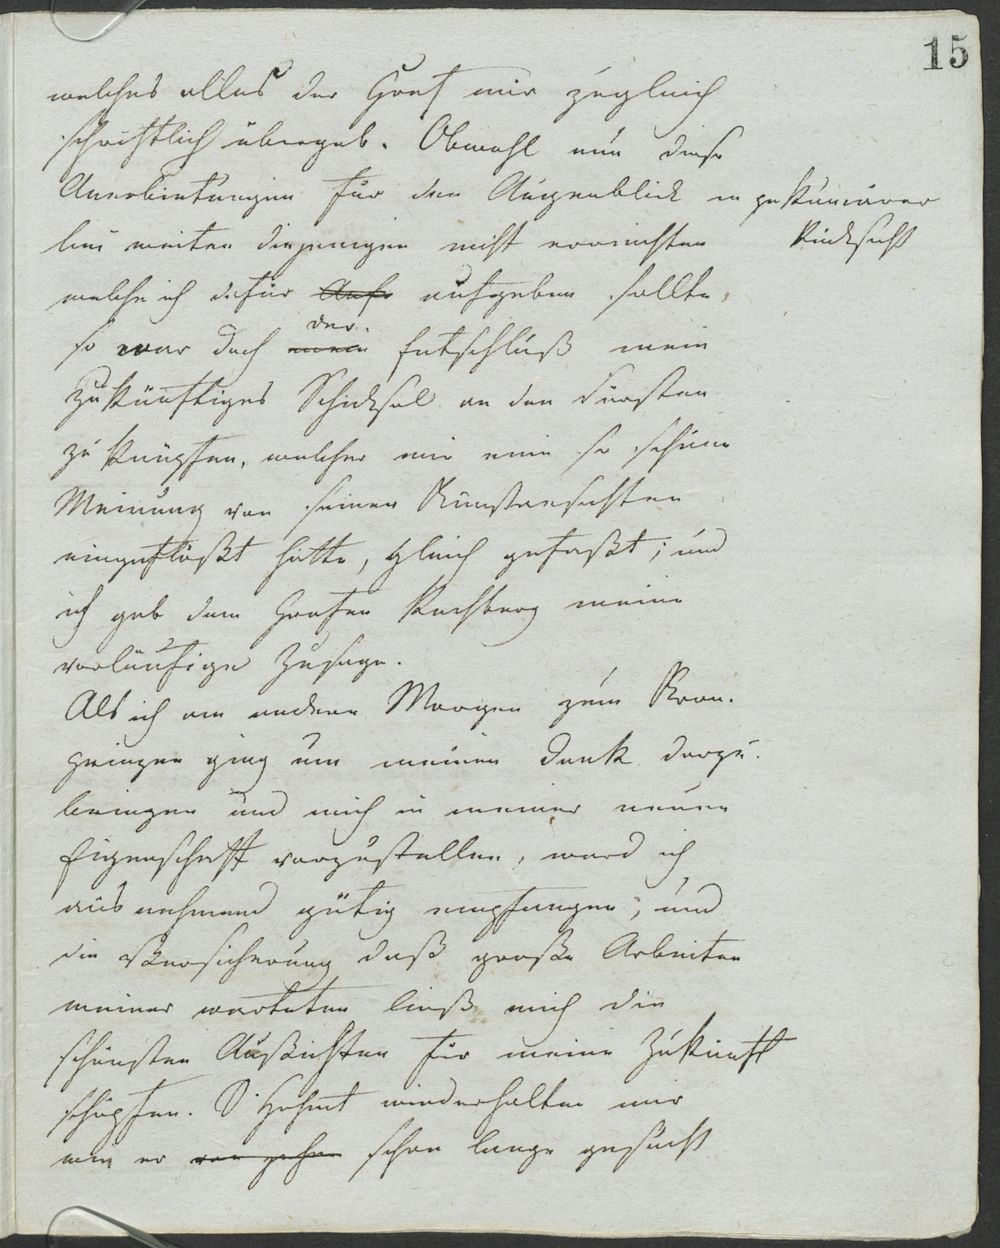 15
welches alles der Graf mir zugleich
schriftlich übergab. Obwohl nun diese
Anerbietungen für den Augenblick in pekuniärer
Rücksicht
bei weiten diejenigen nicht erreichten
welche ich dafür aufgeben sollte,
der
so war doch mein Entschluß mein
zukünftiges Schicksal an den Fürsten
zu knüpfen, welcher mir eine so schöne
Meinung von seinen Kunstansichten
eingeflößt hatte, gleich gefaßt; und
ich gab dem Grafen Rechberg meine
vorläufige Zusage.
Als ich am andern Morgen zum Kron-
prinzen ging um meinen Dank darzu-
bringen und mich in meiner neuen
Eigenschaft vorzustellen, ward ich
aus nehmend gütig empfangen, und
die Versicherung daß große Arbeiten
meiner warteten ließ mich die
schönsten Aussichten für meine Zukunft
schöpfen. S. Hoheit wiederholten mir
wie er schon lange gesucht